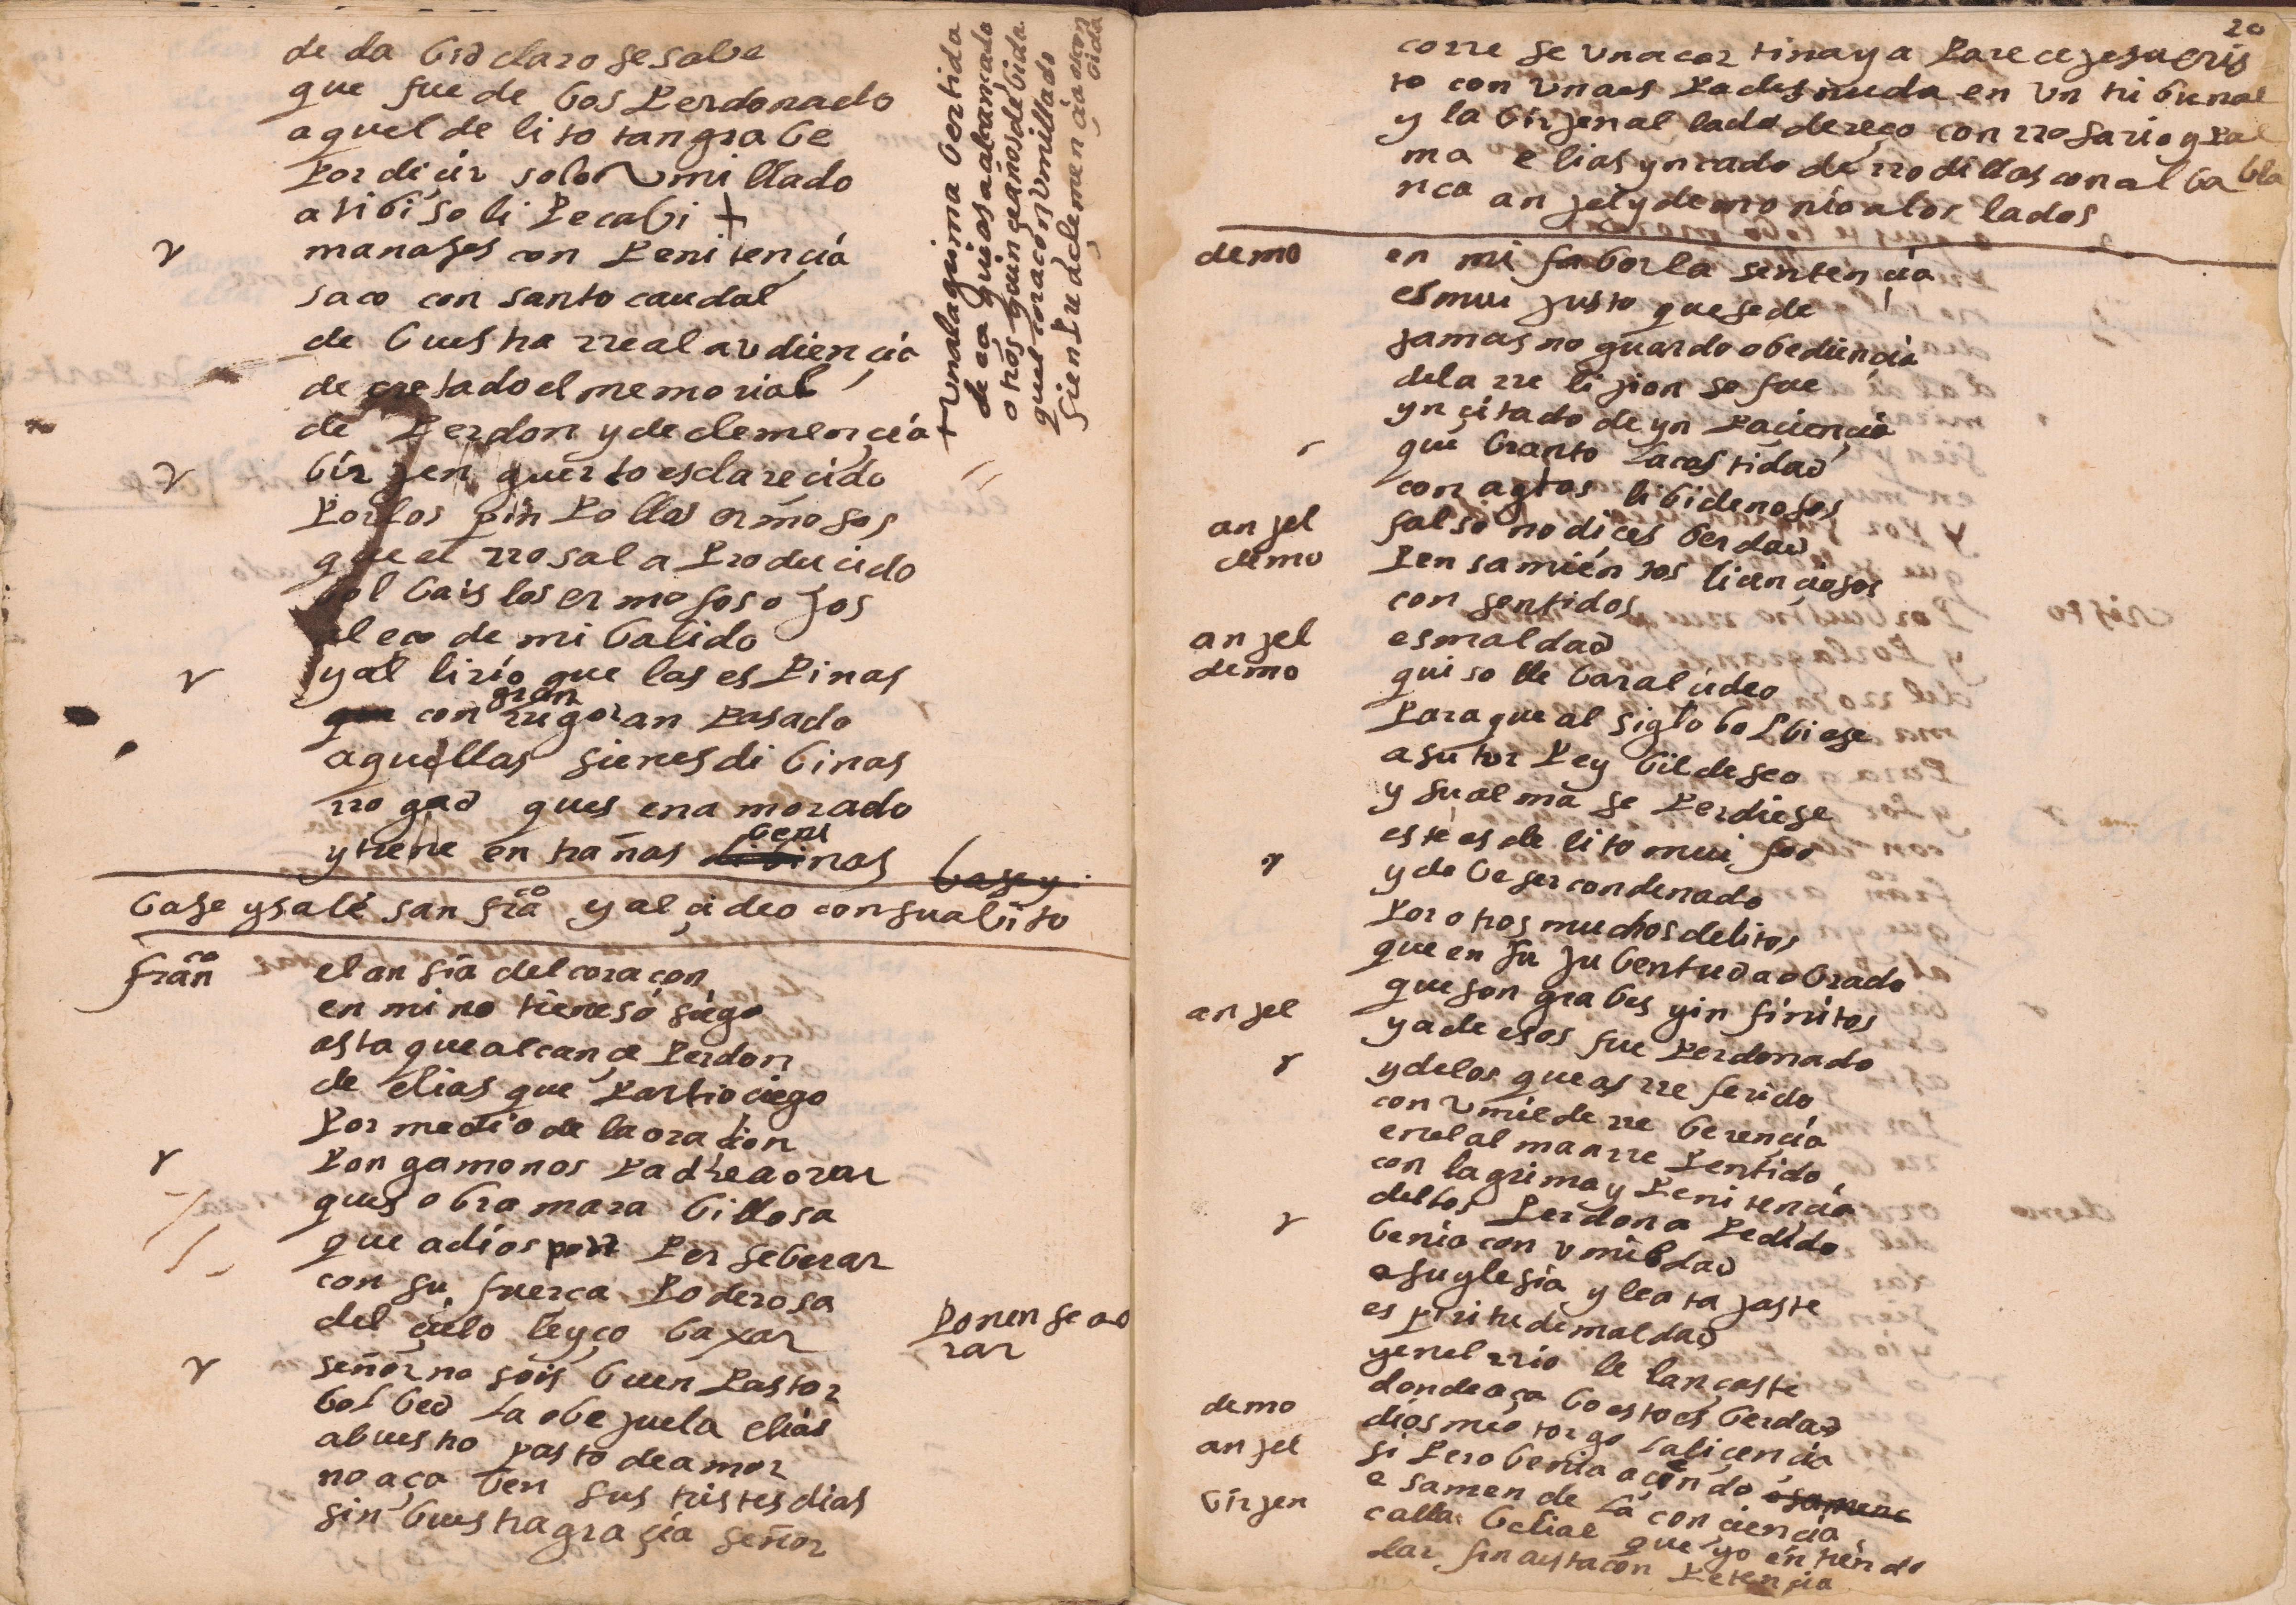 de dabid claro se sabe
que fue de bos perdonado
aquel delito tan grabe
por dicir solo umillado
a tibi soli pecabi +
manases con penitencia
saco con santo caudal
de buestra rreal audiençia
decretado el memorial
de perdon y de clemençia
birjen guerto esclarecido
por los pinpollos ermosos
que el rrosal a producido
bolbais los ermosos ojos
al eco de mi balido
y al lirio que las espinas
con gran rrigor an pasado
aquellas sienes dibinas
rrogad ques enamorado
y tiene entrañas beninas
base y
base y sale san franco y alçideo con su abito
franco el ansia del coraçon
en mi no tiene sosiego
asta que alcançe perdon
de elias que partio ciego
por medio de la oraçion
pongamonos padre a orar
ques obra marabillosa
que a dios por perseberar
con su fuerça poderosa
del çielo le yço baxar
ponense a o
rar
señor no sois buen pastor
bolbed la obejuela elias
a buestro pasto de amor
no acaben sus tristes dias
sin buestra graçia señor
+ una lagrima bertida
de ecequias a alcançado
otros quinçe años de bida
quel coraçon umillado
sienpre clemençia
bida
20
correse una cortina y aparece jesucris
to con una espa desnuda en un tribunal
y la birjen al lado dereço con rrosario y pal
ma elias yncado de rrodillas con alba bla
nca anjel y demonio a los lados
demo en mi fabor la sentençia
es mui justo que se de
jamas no guardo obediençia
de la rrelijion se fue
ynçitado de ynpaciençia
quebranto la castidad
con actos libidenosos
anjel falso no dices berdad
demo pensamientos liçençiosos
consentidos
anjel es maldad
demo quiso llebar alcideo
para que al siglo bolbiese
a su torpe y bil deseo
y su alma se perdiese
este es delito mui feo
y debe ser condenado
por otros muchos delitos
que en su jubentud a obrado
que son grabes y infinitos
anjel ya de esos fue perdonado
y de los que as rreferido
con umilde rreberençia
en el alma arrepentido
con lagrima y penitençia
dellos perdon a pedido
benia con umildad
a su yglesia y le atajaste
espiritu de maldad
y en el rrio le lançaste
donde acabo esto es berdad
demo dios me otorgo la liçençia
anjel si pero benia açiendo
esamen de la conciençia
birjen calla belial que yo entiendo
dar fin a esta conpetençia